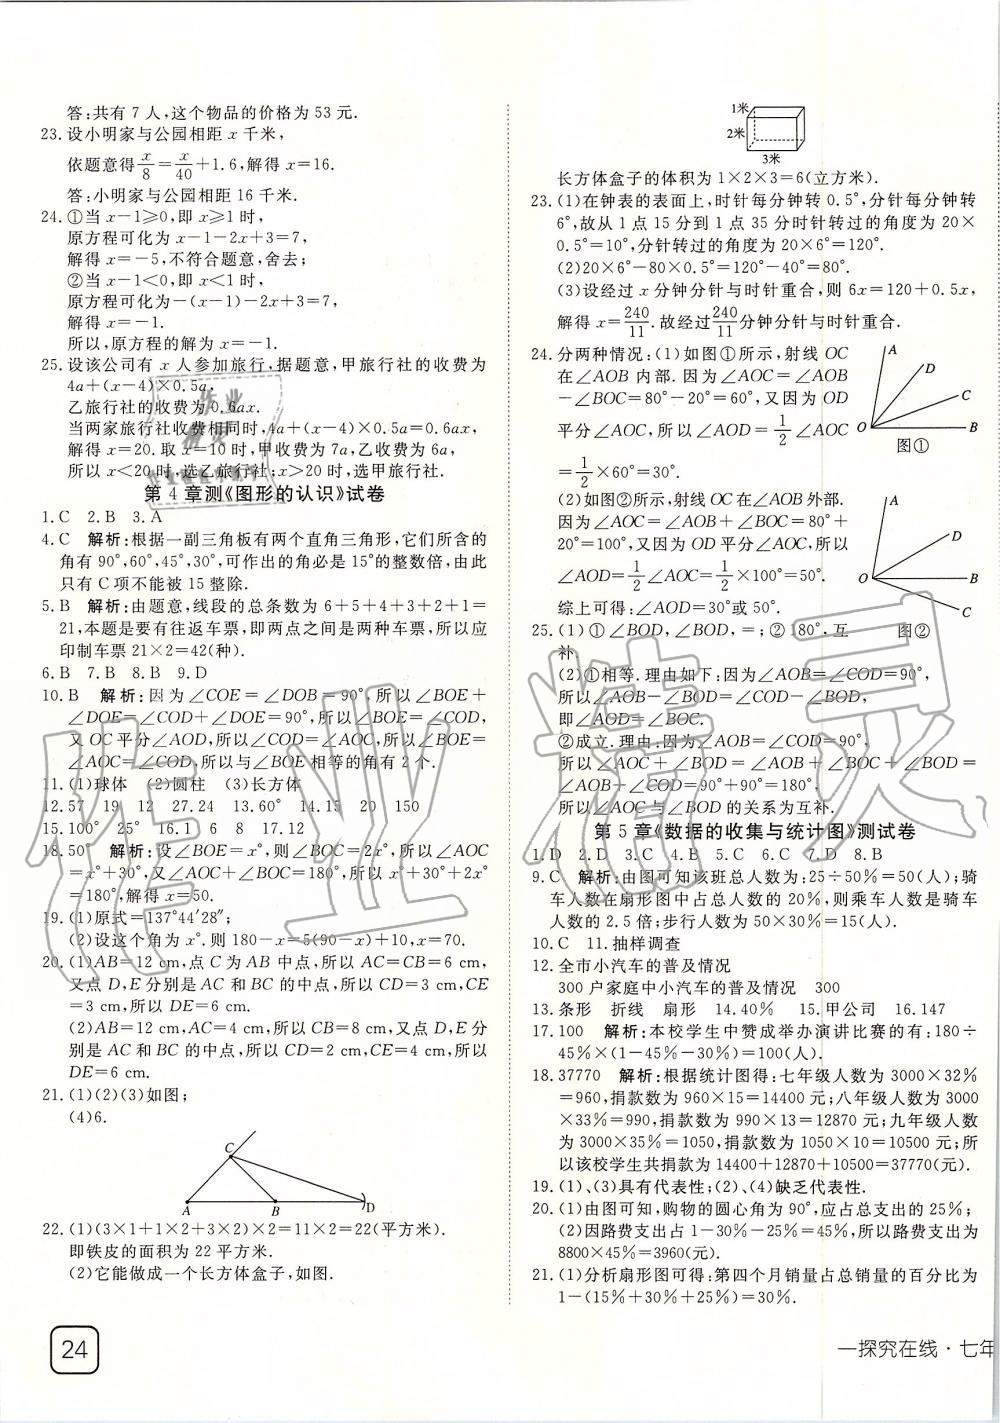 答:共有 7 人,这个物品的价格为 53 元.
23.设小明家与公园相距 x 千米,
依题意得x/8=x/40+1.6,解得 x=16.
答:小明家与公园相距 16 千米.
24.①当 x-1≥0,即 x≥1 时,
原方程可化为 x-1-2x+3=7,
解得 x=-5,不符合题意,舍去;
②当 x-1<0,即 x<1 时,
原方程可化为-(x-1)-2x+3=7,
解得 x=-1.
所以,原方程的解为 x=-1.
25.设该公司有 x 人参加旅行,据题意,甲旅行社的收费为
4a+(x-4)×0.5a,
乙旅行社的收费为 0.6ax.
当两家旅行社收费相同时,4a+(x-4)×0.5a=0.6ax,
解得 x=20.取 x=10 时,甲收费为 7a,乙收费为 6a,
所以 x<20 时,选乙旅行社;x>20 时,选甲旅行社.
第 4 章测《图形的认识》试卷
1.C 2.B 3.A
4.C 解析:根据一副三角板有两个直角三角形,它们所含的
角有 90°,60°,45°,30°,可作出的角必是 15°的整数倍,由此
只有 C 项不能被 15 整除.
5.B 解析:由题意,线段的总条数为 6+5+4+3+2+1=
21,本题是要有往返车票,即两点之间是两种车票,所以应
印制车票 21×2=42(种).
6.B 7.B 8.B 9.D
10.B 解析:因为∠COE=∠DOB=90°,所以∠BOE+
∠DOE=∠COD+∠DOE=90°,所以∠BOE=∠COD,
又 OC 平分∠AOD,所以∠COD=∠AOC,所以∠BOE=
∠AOC=∠COD,所以与∠BOE 相等的角有 2 个.
11.(1)球体 (2)圆柱 (3)长方体
12.57 19 12 27.24 13.60° 14.15 20 150
15.100° 25° 16.1 6 8 17.12
18.50° 解析:设∠BOE=x°,则∠BOC=2x°,所以∠AOC
=x°+30°,又∠AOC+∠BOC=180°,所以 x°+30°+2x°
=180°,解得 x=50.
19.(1)原式=137°44′28″;
(2)设这个角为 x°.则 180-x=5(90-x)+10,x=70.
20.(1)AB=12 cm,点 C 为 AB 中点,所以 AC=CB=6 cm,
又点 D,E 分别是 AC 和 BC 的中点,所以 CD=3 cm,CE
=3 cm,所以 DE=6 cm.
(2)AB=12 cm,AC=4 cm,所以 CB=8 cm,又点 D,E 分
别是 AC 和 BC 的中点,所以 CD=2 cm,CE=4 cm,所以
DE=6 cm.
21.(1)(2)(3)如图;
(4)6.
C
A B D
22.(1)(3×1+1×2+3×2)×2=11×2=22(平方米).
即铁皮的面积为 22 平方米.
(2)它能做成一个长方体盒子,如图.
24
1米
2米
3米
长方体盒子的体积为 1×2×3=6(立方米).
23.(1)在钟表的表面上,时针每分钟转 0.5°,分针每分钟转
6°,故从 1 点 15 分到 1 点 35 分时针转过的角度为 20×
0.5°=10°,分针转过的角度为 20×6°=120°.
(2)20×6°-80×0.5°=120°-40°=80°.
(3)设经过 x 分钟分针与时针重合,则 6x=120+0.5x,
解得 x=240/11.故经过240/11分钟分针与时针重合.
24.分两种情况:(1)如图①所示,射线 OC
在∠AOB 内部.因为∠AOC=∠AOB
-∠BOC=80°-20°=60°,又因为 OD
平分∠AOC,所以∠AOD=1/2∠AOC
=1/2×60°=30°.
A
D
C
O B
图①
(2)如图②所示,射线 OC 在∠AOB 外部.
因为∠AOC=∠AOB+∠BOC=80°+
20°=100°,又因为 OD 平分∠AOC,所以
∠AOD=1/2∠AOC=1/2×100°=50°.
综上可得:∠AOD=30°或 50°.
A
D
O B
C
图②
25.(1)①∠BOD,∠BOD,=;②180°,互
补.
(2)①相等.理由如下:因为∠AOB=∠COD=90°,
所以∠AOB-∠BOD=∠COD-∠BOD,
即∠AOD=∠BOC.
②成立.理由:因为∠AOB=∠COD=90°,
所以∠AOC+∠BOD=∠AOB+∠BOC+∠BOD=
∠AOB+∠COD=90°+90°=180°,
所以∠AOC 与∠BOD 的关系为互补.
第 5 章《数据的收集与统计图》测试卷
1.D 2.D 3.C 4.B 5.C 6.C 7.D 8.B
9.C 解析:由图可知该班总人数为:25÷50%=50(人);骑
车人数在扇形图中占总人数的 20%,则乘车人数是骑车
人数的 2.5 倍;步行人数为 50×30%=15(人).
10.C 11.抽样调查
12.全市小汽车的普及情况
300 户家庭中小汽车的普及情况 300
13.条形 折线 扇形 14.40% 15.甲公司 16.147
17.100 解析:本校学生中赞成举办演讲比赛的有:180÷
45%×(1-45%-30%)=100(人).
18.37770 解析:根据统计图得:七年级人数为 3000×32%
=960,捐款数为 960×15=14400 元;八年级人数为 3000
×33%=990,捐款数为 990×13=12870 元;九年级人数
为 3000×35%=1050,捐款数为 1050×10=10500 元;所
以该校学生共捐款为 14400+12870+10500=37770(元).
19.(1)、(3)具有代表性;(2)、(4)缺乏代表性.
20.(1)由图可知,购物的圆心角为 90°,应占总支出的 25%;
(2)因路费支出占 1-30%-25%=45%,所以路费支出为
8800×45%=3960(元).
21.(1)分析扇形图可得:第四个月销量占总销量的百分比为
1-(15%+30%+25%)=30%.
一探究在线·七年
作业精灵